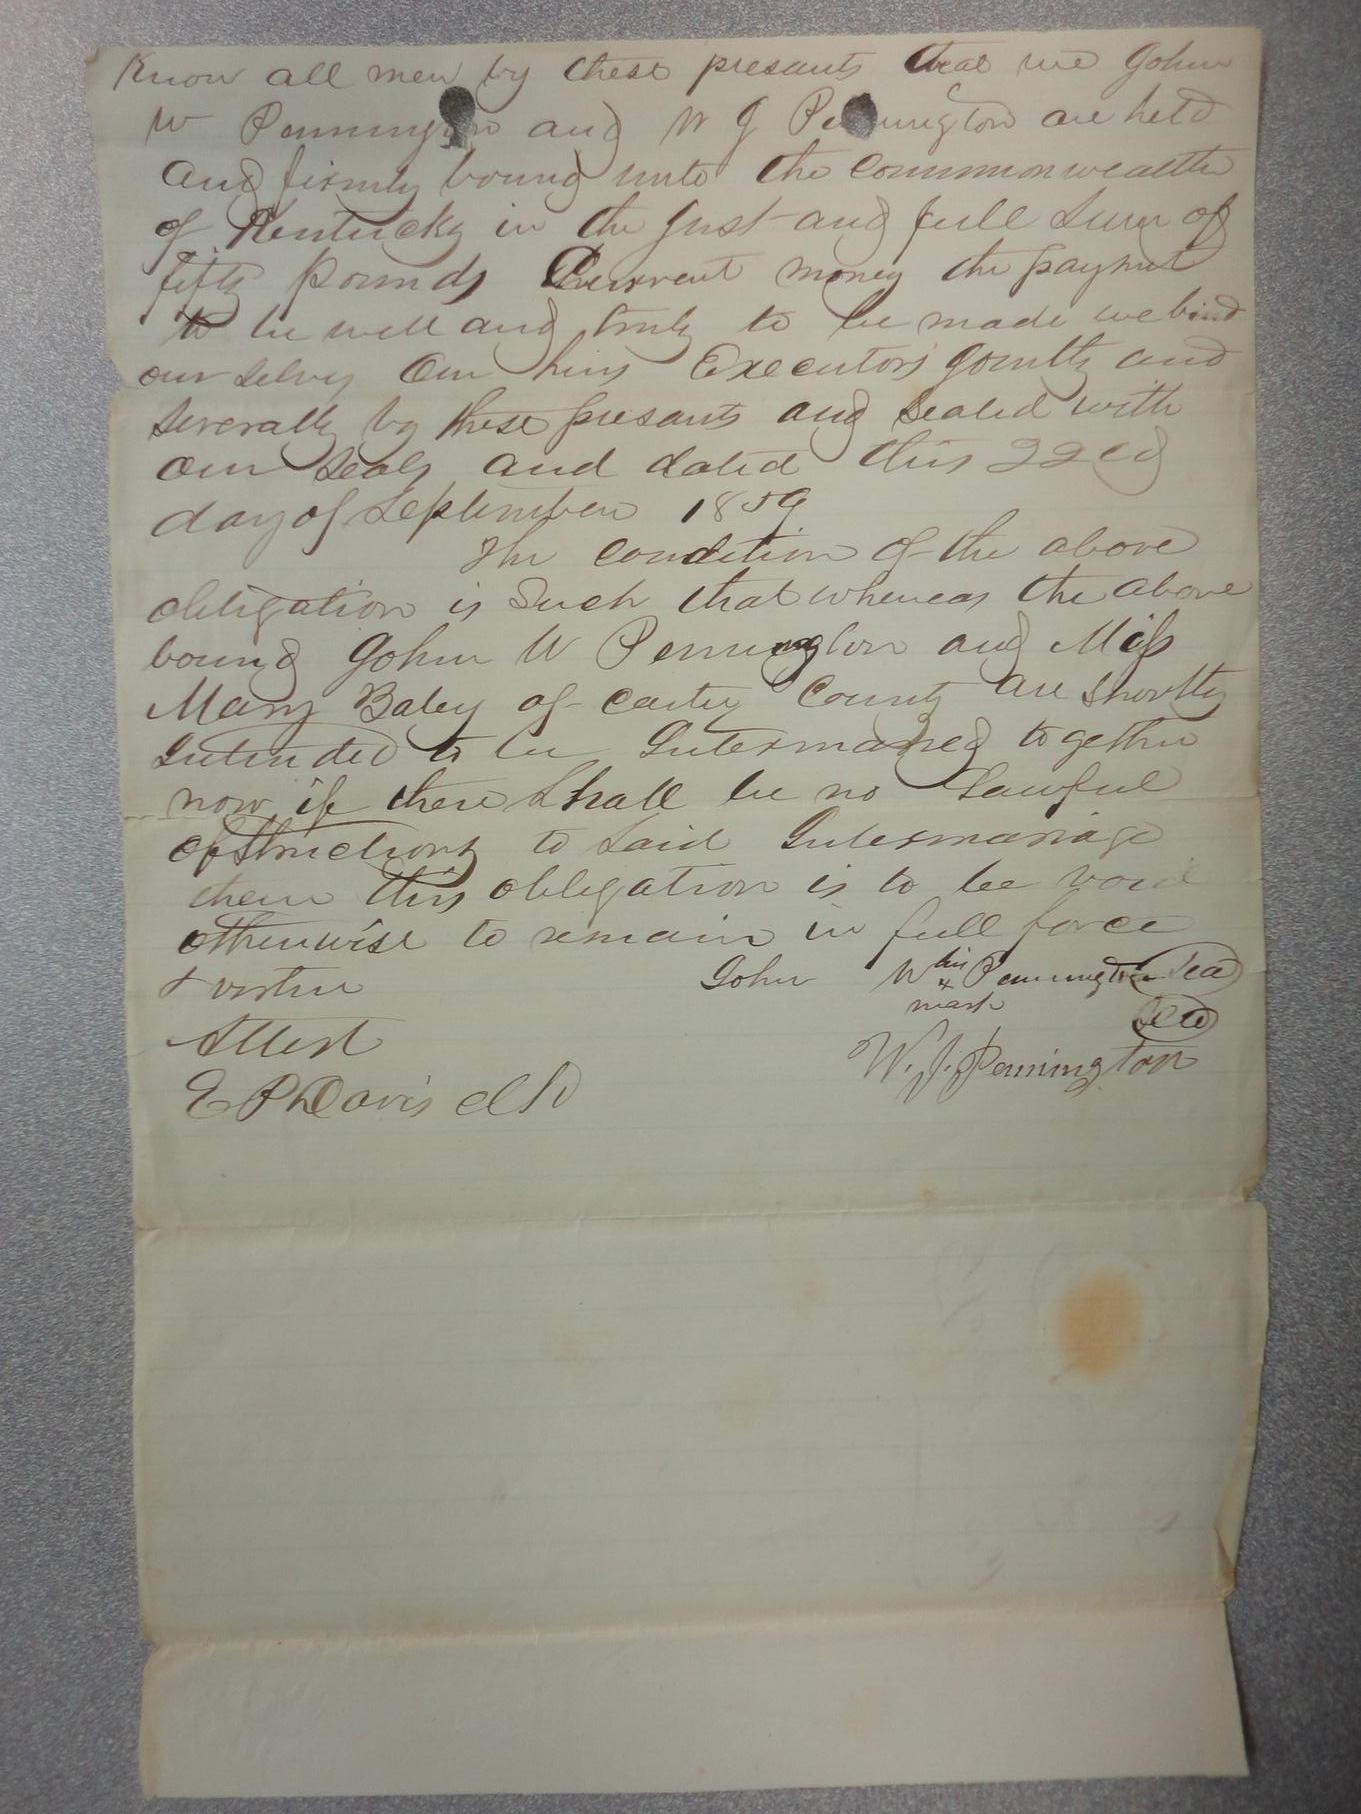 Know all men by these presants that we John
W Pennington and W J Pennington are held
and firmly bound unto the commonwealth
of Kentucky in the Just and full Sum of
fifty pounds Current money the paymet
to be well and truly to be made we bind
our selvs Our hirs Executors Jointly and
severally by these presants and sealed with
our Seals and dated this 22ed
day of September 1859
The condition of the above
obligation is Such that whereas the above
bound John W Pennington and Miss
Mary Baley of Carter County are shortly
Intended to be Intermaried together
now if there Shall be no Lawful
obstructions to said Intermariage
then this obligation is to be void
otherwise to remain in full force
& vertue John W his Pennington Seal
x
mark
Seal
Attest W. J. Pennington
E P Davis clk